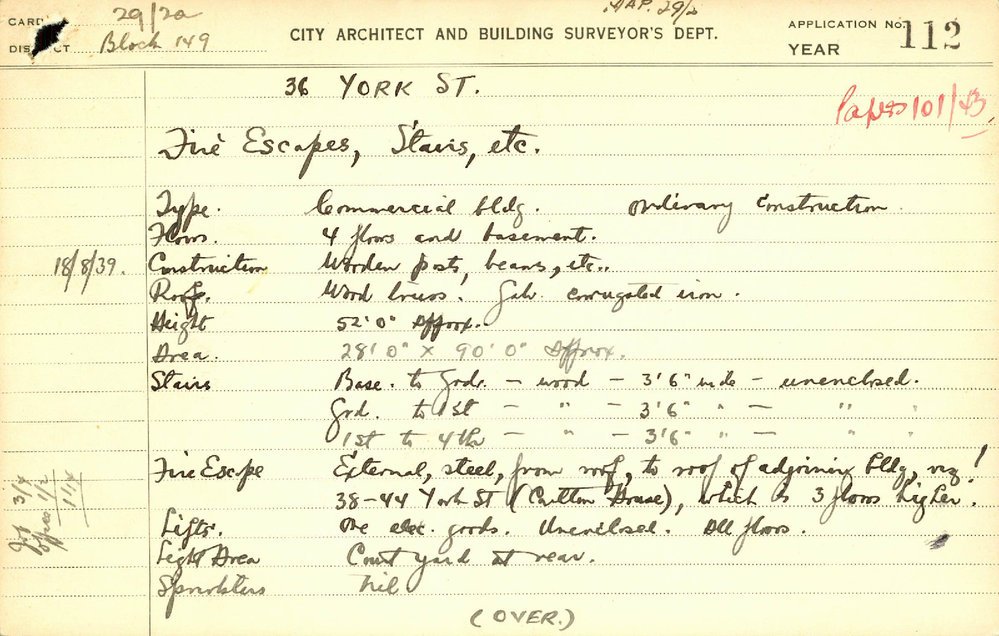 CARD 29/2a
MAP. 29/2
DISTRICT Block 149
CITY ARCHITECT AND BUILDING SURVEYOR'S DEPT.
APPLICATION No. 112
YEAR
36 YORK ST.
Papers 101/43.
Fire Escapes, Stairs, etc.
Type. Commercial bldg. Ordinary Construction
Floors. 4 floors and basement.
18/8/39. Construction Wooden posts, beams, etc..
Roof. Wood truss. Galv. corrugated iron.
Height 52'0" Approx.
Area. 28'0" x 90'0" Approx.
Stairs Base. to Grd. – wood – 3'6" wide – unenclosed.
Grd. to 1st – " – 3'6" " – " "
1st to 4th – " – 3'6" " – " "
Fire Escape External, steel, from roof, to roof of adjoining bldg, viz
38-44 York St (Carlton House), which is 3 floors higher!
Lifts. One elec. goods. Unenclosed. All floors.
Light Area Court yard at rear.
Sprinklers Nil
(OVER.)
3/4
1/2
1 1/4